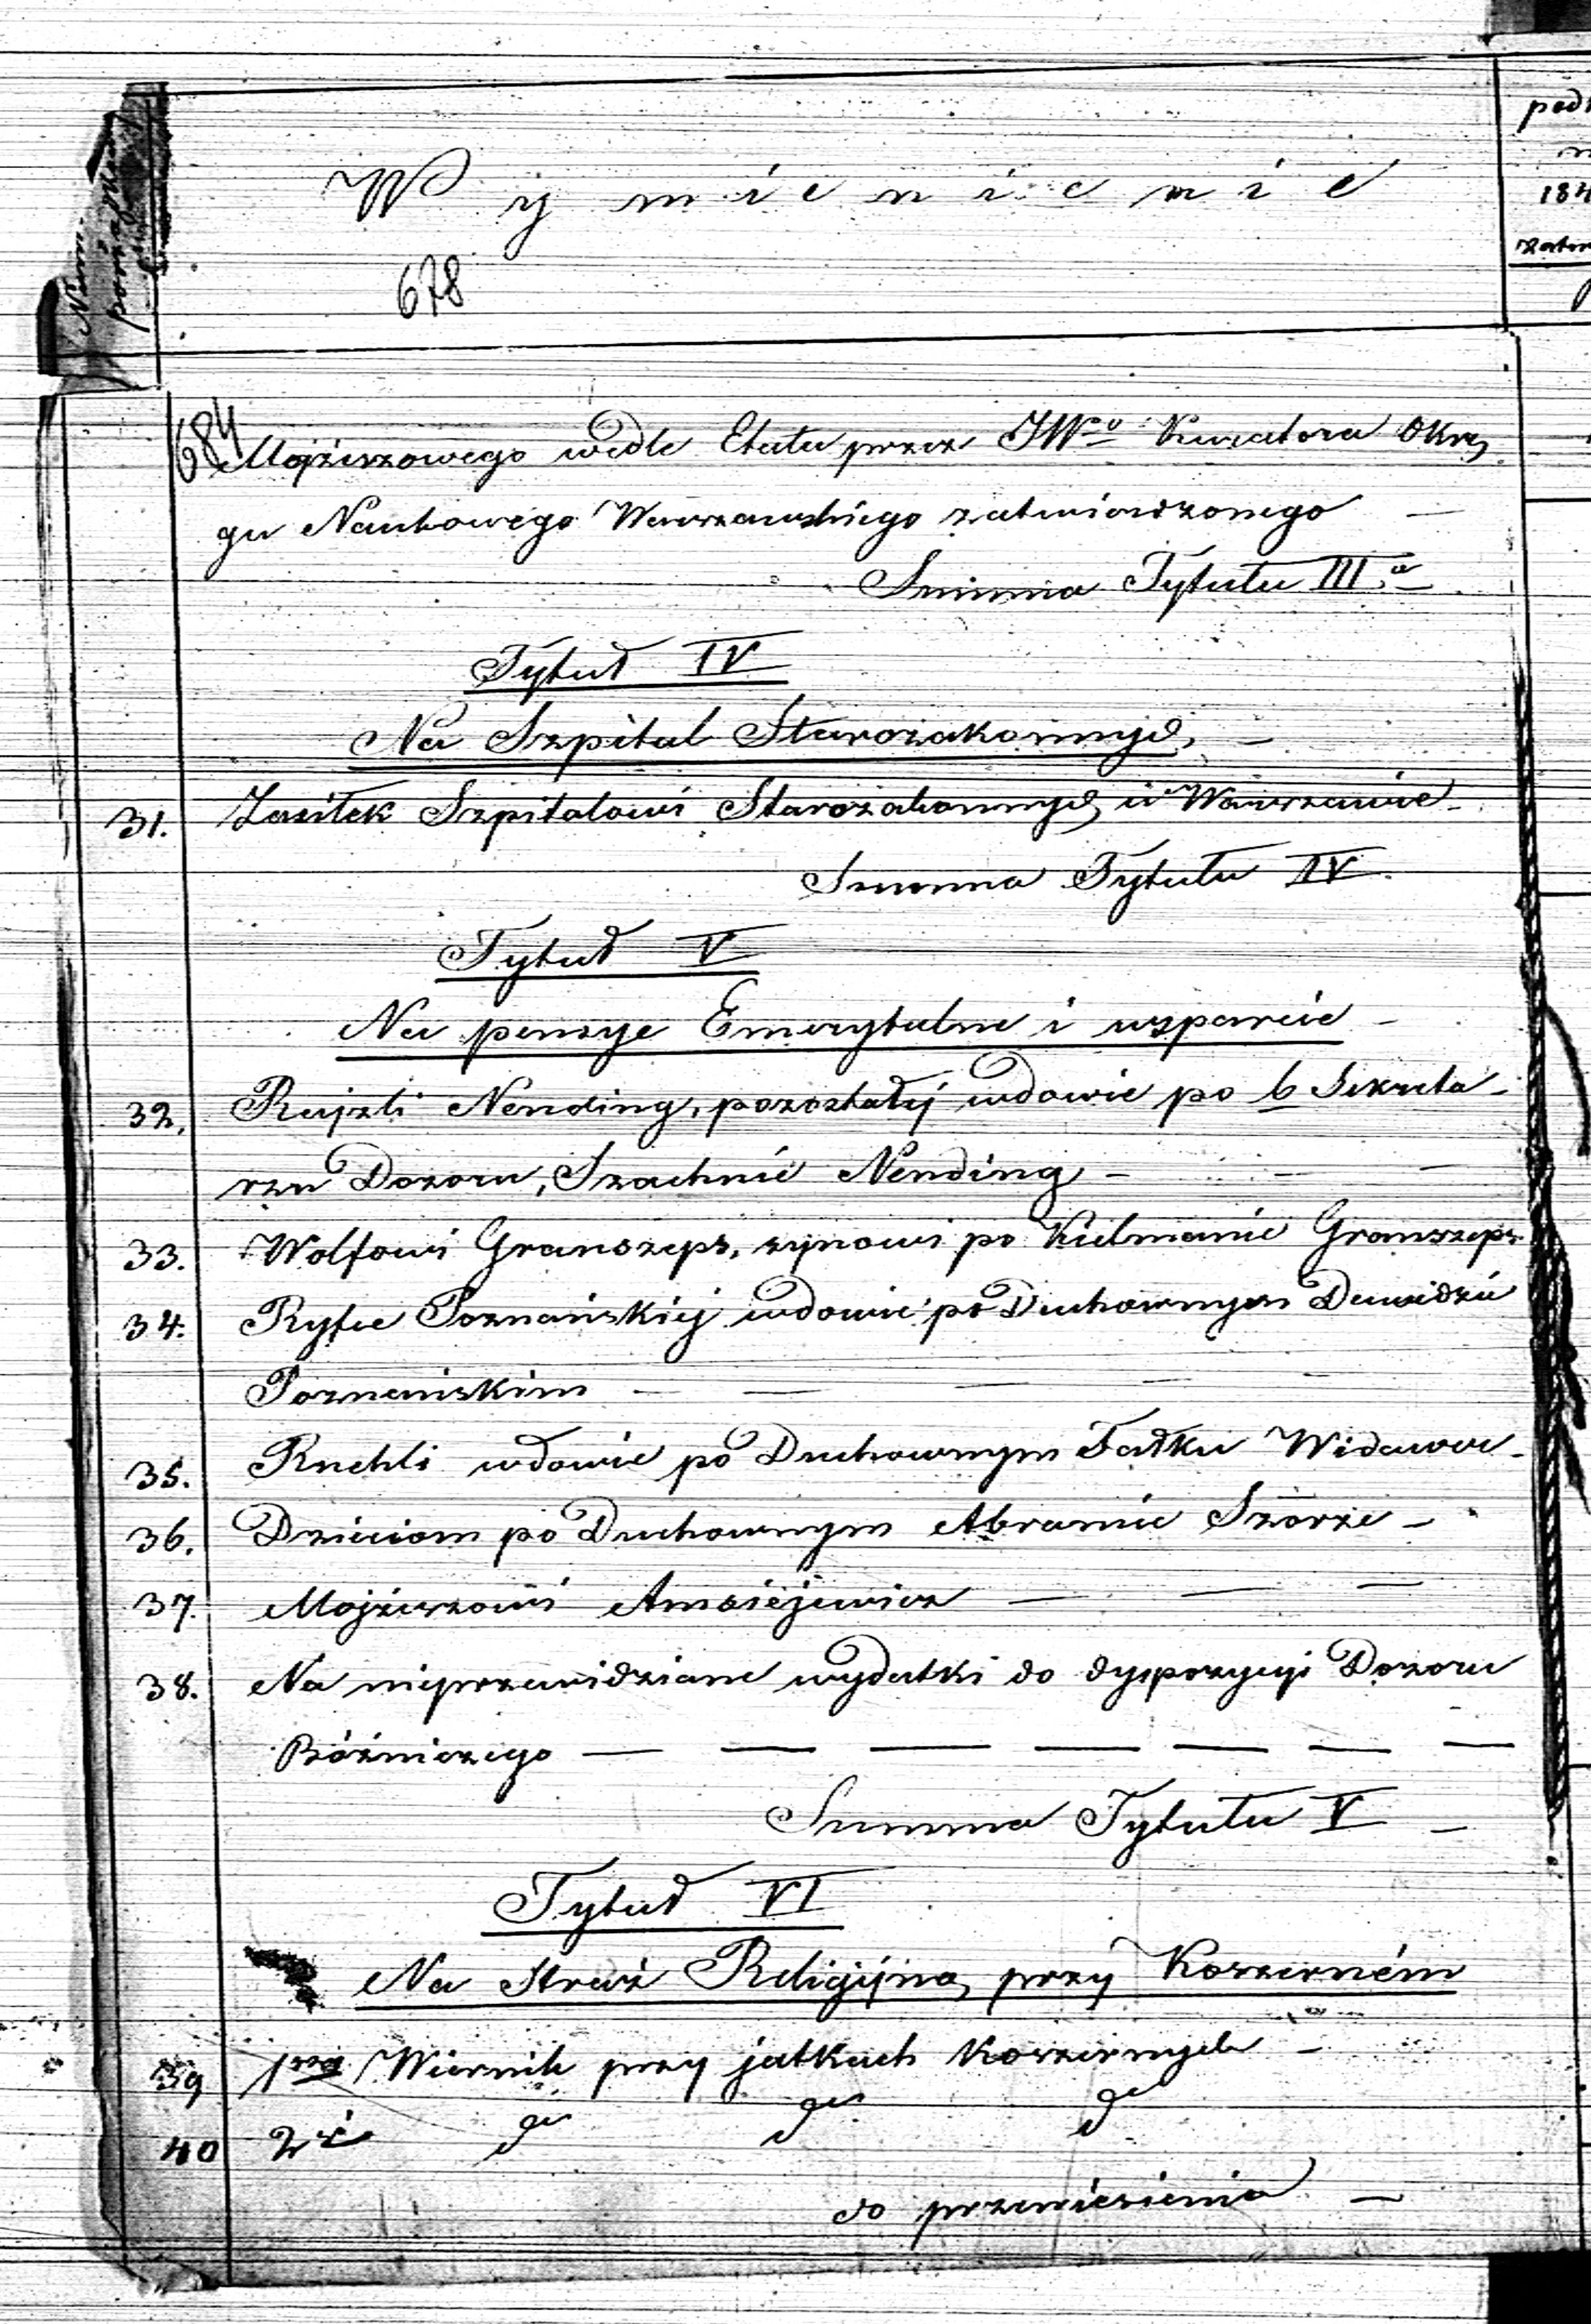 Wymienienie
678
684
Mojżeszowego wedle Etatu przez JWo Kuratora Okrę
gu Naukowego Warszawskiego zatwierdzonego —
Summa Tytułu III.
Tytuł IV
Na Szpital Starozakonnych —
31. Zasiłek Szpitalowi Starozakonnych w Warszawie —
Summa Tytułu IV.
Tytuł V
Na pensye Emerytalne i wsparcie —
32. Rajzli Nending, pozostałej wdowie po b Sekreta-
rzu Dozoru, Szachnie Nending —
33. Wolfowi Granszeps, synowi po Kielmanie Granszeps
34. Ryfce Poznańskiej wdowie po Duchownym Dawidzie
Poznańskim —
35. Ruchli wdowie po Duchownym Fałku Widawer —
36. Dzieciom po Duchownym Abramie Szorze —
37. Mojżeszowi Amsiejewicz —
38. Na nieprzewidziane wydatki do dyspozycyi Dozoru
Bóźniczego —
Summa Tytułu V —
Tytuł VI
Na Straż Religijną przy Koszerném
39 1szy Wiernik przy jatkach Koszernych —
40 2gi do do do
do przeniesienia —